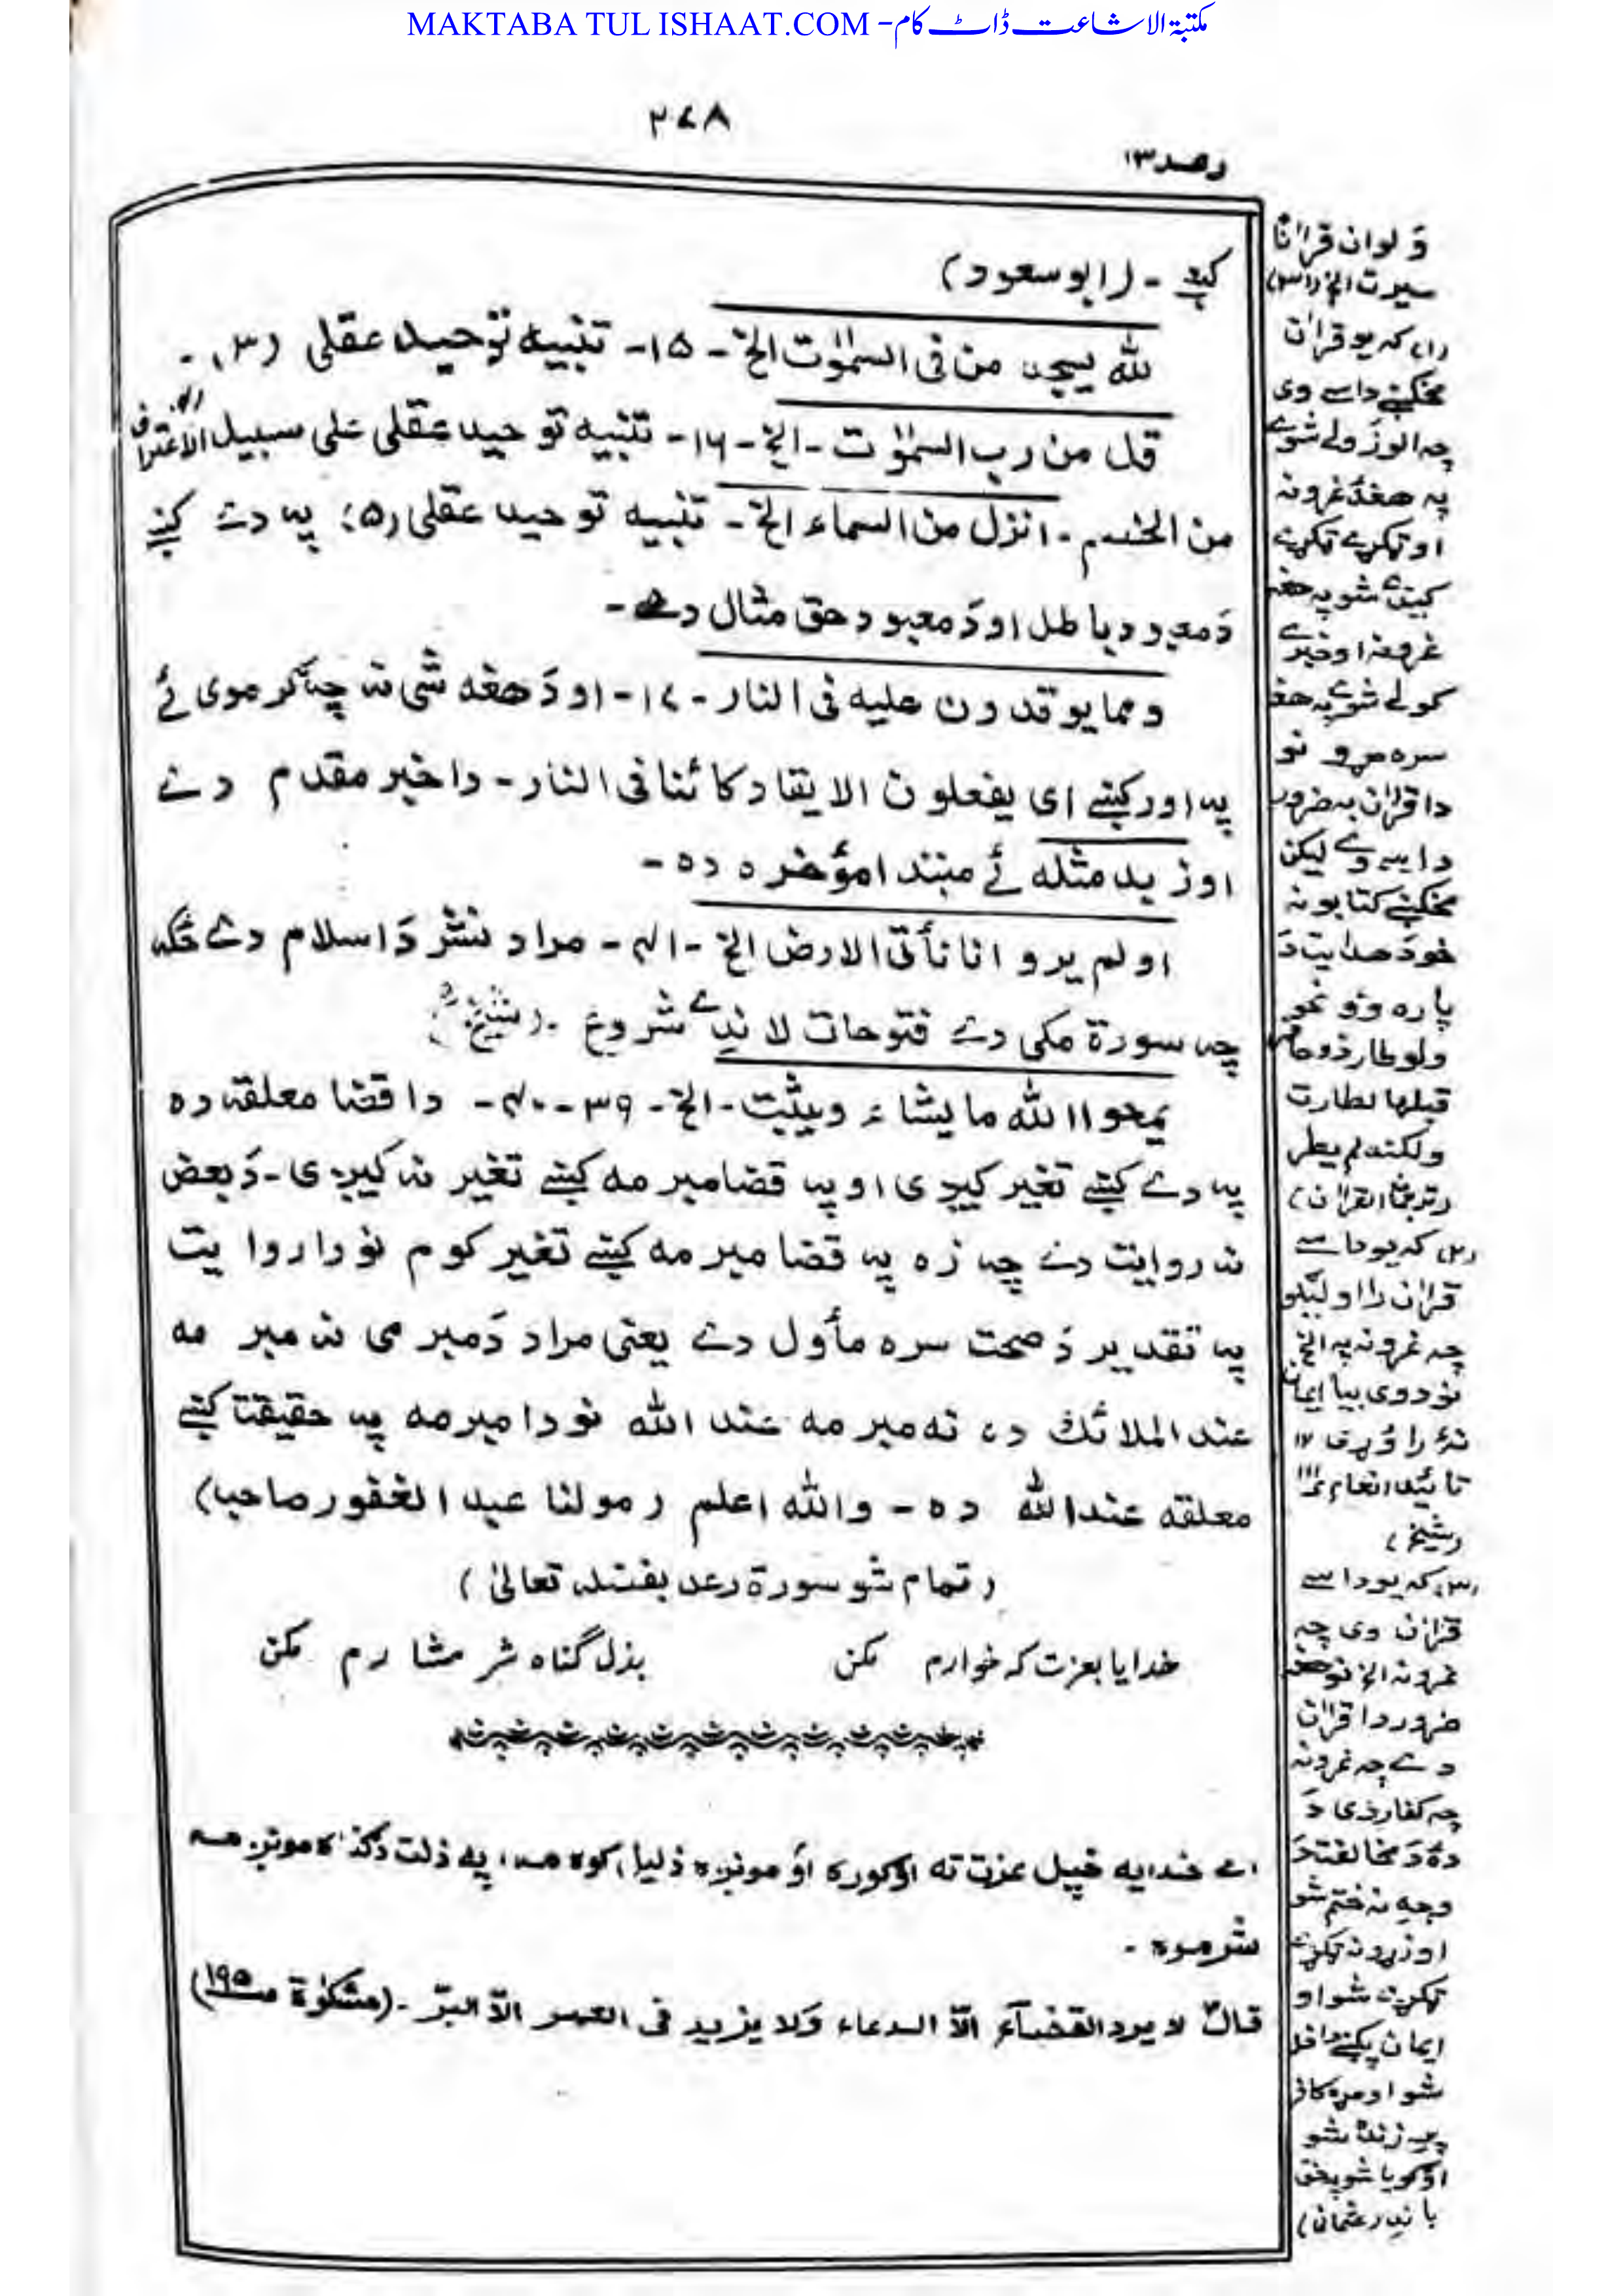 MAKTABA TUL ISHAAT.COM - مکتبۃ الاشاعت ڈاٹ کام
۲۷۸
رعد ۱۳
کښے - (ابو سعود)
لله یسجد من فی السمٰوٰت الخ - ۱۵ - تنبیه توحید عقلی (۳) -
قل من رب السمٰوٰت - الخ - ۱۶ - تنبیه توحید عقلی علی سبیل الاعتراف
من الخصم - انزل من السماء الخ - تنبیه توحید عقلی (۵) په دے کښے
دَ معبود باطل او دَ معبود حق مثال دے -
ومما یوقدون علیه فی النار - ۱۷ - او دَ هغه شی نه چه ګرموی ئے
په اور کښے ای یفعلون الایقاد کائنا فی النار - دا خبر مقدم دے
او زبد مثله ئے مبتدا مؤخره ده -
اولم یروا انا نأتی الارض الخ - ۴۱ - مراد نشر دَ اسلام دے ځکه
چه سورة مکی دے فتوحات لا ندے شروع - (شیخ)
یمحوا الله ما یشاء ویثبت - الخ - ۳۹ - ۴۰ - دا قضا معلقه ده
په دے کښے تغیر کیږی او په قضا مبرمه کښے تغیر نه کیږی - دَ بعض
نه روایت دے چه زه په قضا مبرمه کښے تغیر کوم نو دا روایت
په تقدیر دَ صحت سره مأول دے یعنی مراد دَ مبرمی نه مبرمه
عند الملائک ده نه مبرمه عند الله نو دا مبرمه په حقیقتا کښے
معلقه عند الله ده - والله اعلم (مولنا عبد الغفور صاحب)
(تمام شو سورة رعد بفضله تعالیٰ)
خدایا بعزت که خوارم مکن بذل گناه شرمشارم مکن
اے خدایه خپل عزت ته اوګوره او مونږه ذلیل کوه مه، په ذلت دګناه مونږ مه
شرموه -
قال لا یرد القضآء الّا الدعاء وَلا یزید فی العمر الّا البرّ - (مشکوٰة ص ۱۹۵)
وَلو ان قرآنا
سیرت الخ (۳۱)
(۱) که یو قرآن
مخکښے داسے وی
چه الوزولے شوے
په هغه غرونه
او ټکړے ټکړے
کیدے شو په هغه
غرونه او خبرے
کولے شوے په هغه
سره مړو نو
دا قرآن به ضرور
داسے وے لیکن
مخکښے کتابونه
خو دَ هدایت دَ
پاره وو نحو
ولو طار ذو حافر
قبلها لطارت
ولکنه لم یطر
(ترجمة القرآن)
(۲) که یو داسے
قرآن را اولیږو
چه غرونه په الخ
نو دوی بیا ایمان
نه راوړی ۱۲
تائید انعام ۱۱۱
(شیخ)
(۳) که یو داسے
قرآن وی چه
غرونه الخ نو هغه
ضرور دا قرآن
دے چه غرونه
چه کفار دی دَ
ده دَ مخالفت دَ
وجه نه ختم شو
او زړونه ټکړے
ټکړے شو او
ایمان پکښے داخل
شو او مړه کافر
پرے زنده شو
او ګویا شو په حق
باندے (عثمانی)